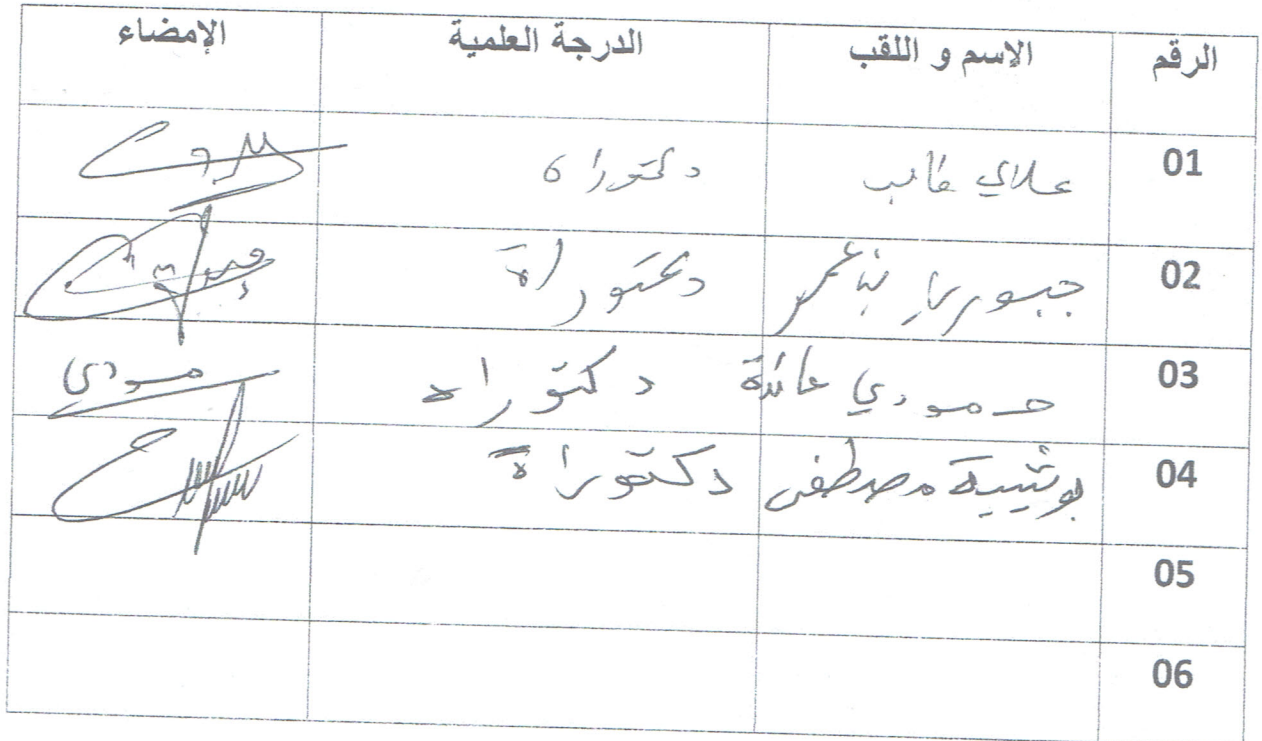 الرقم الإسم و اللقب الدرجة العلمية الإمضاء
01 علالي دكتوراه
02 جبوري بن عمر دكتوراة
03 حمودي عائدة دكتوراه
04 بوثيبة مصطفى دكتوراة
05
06